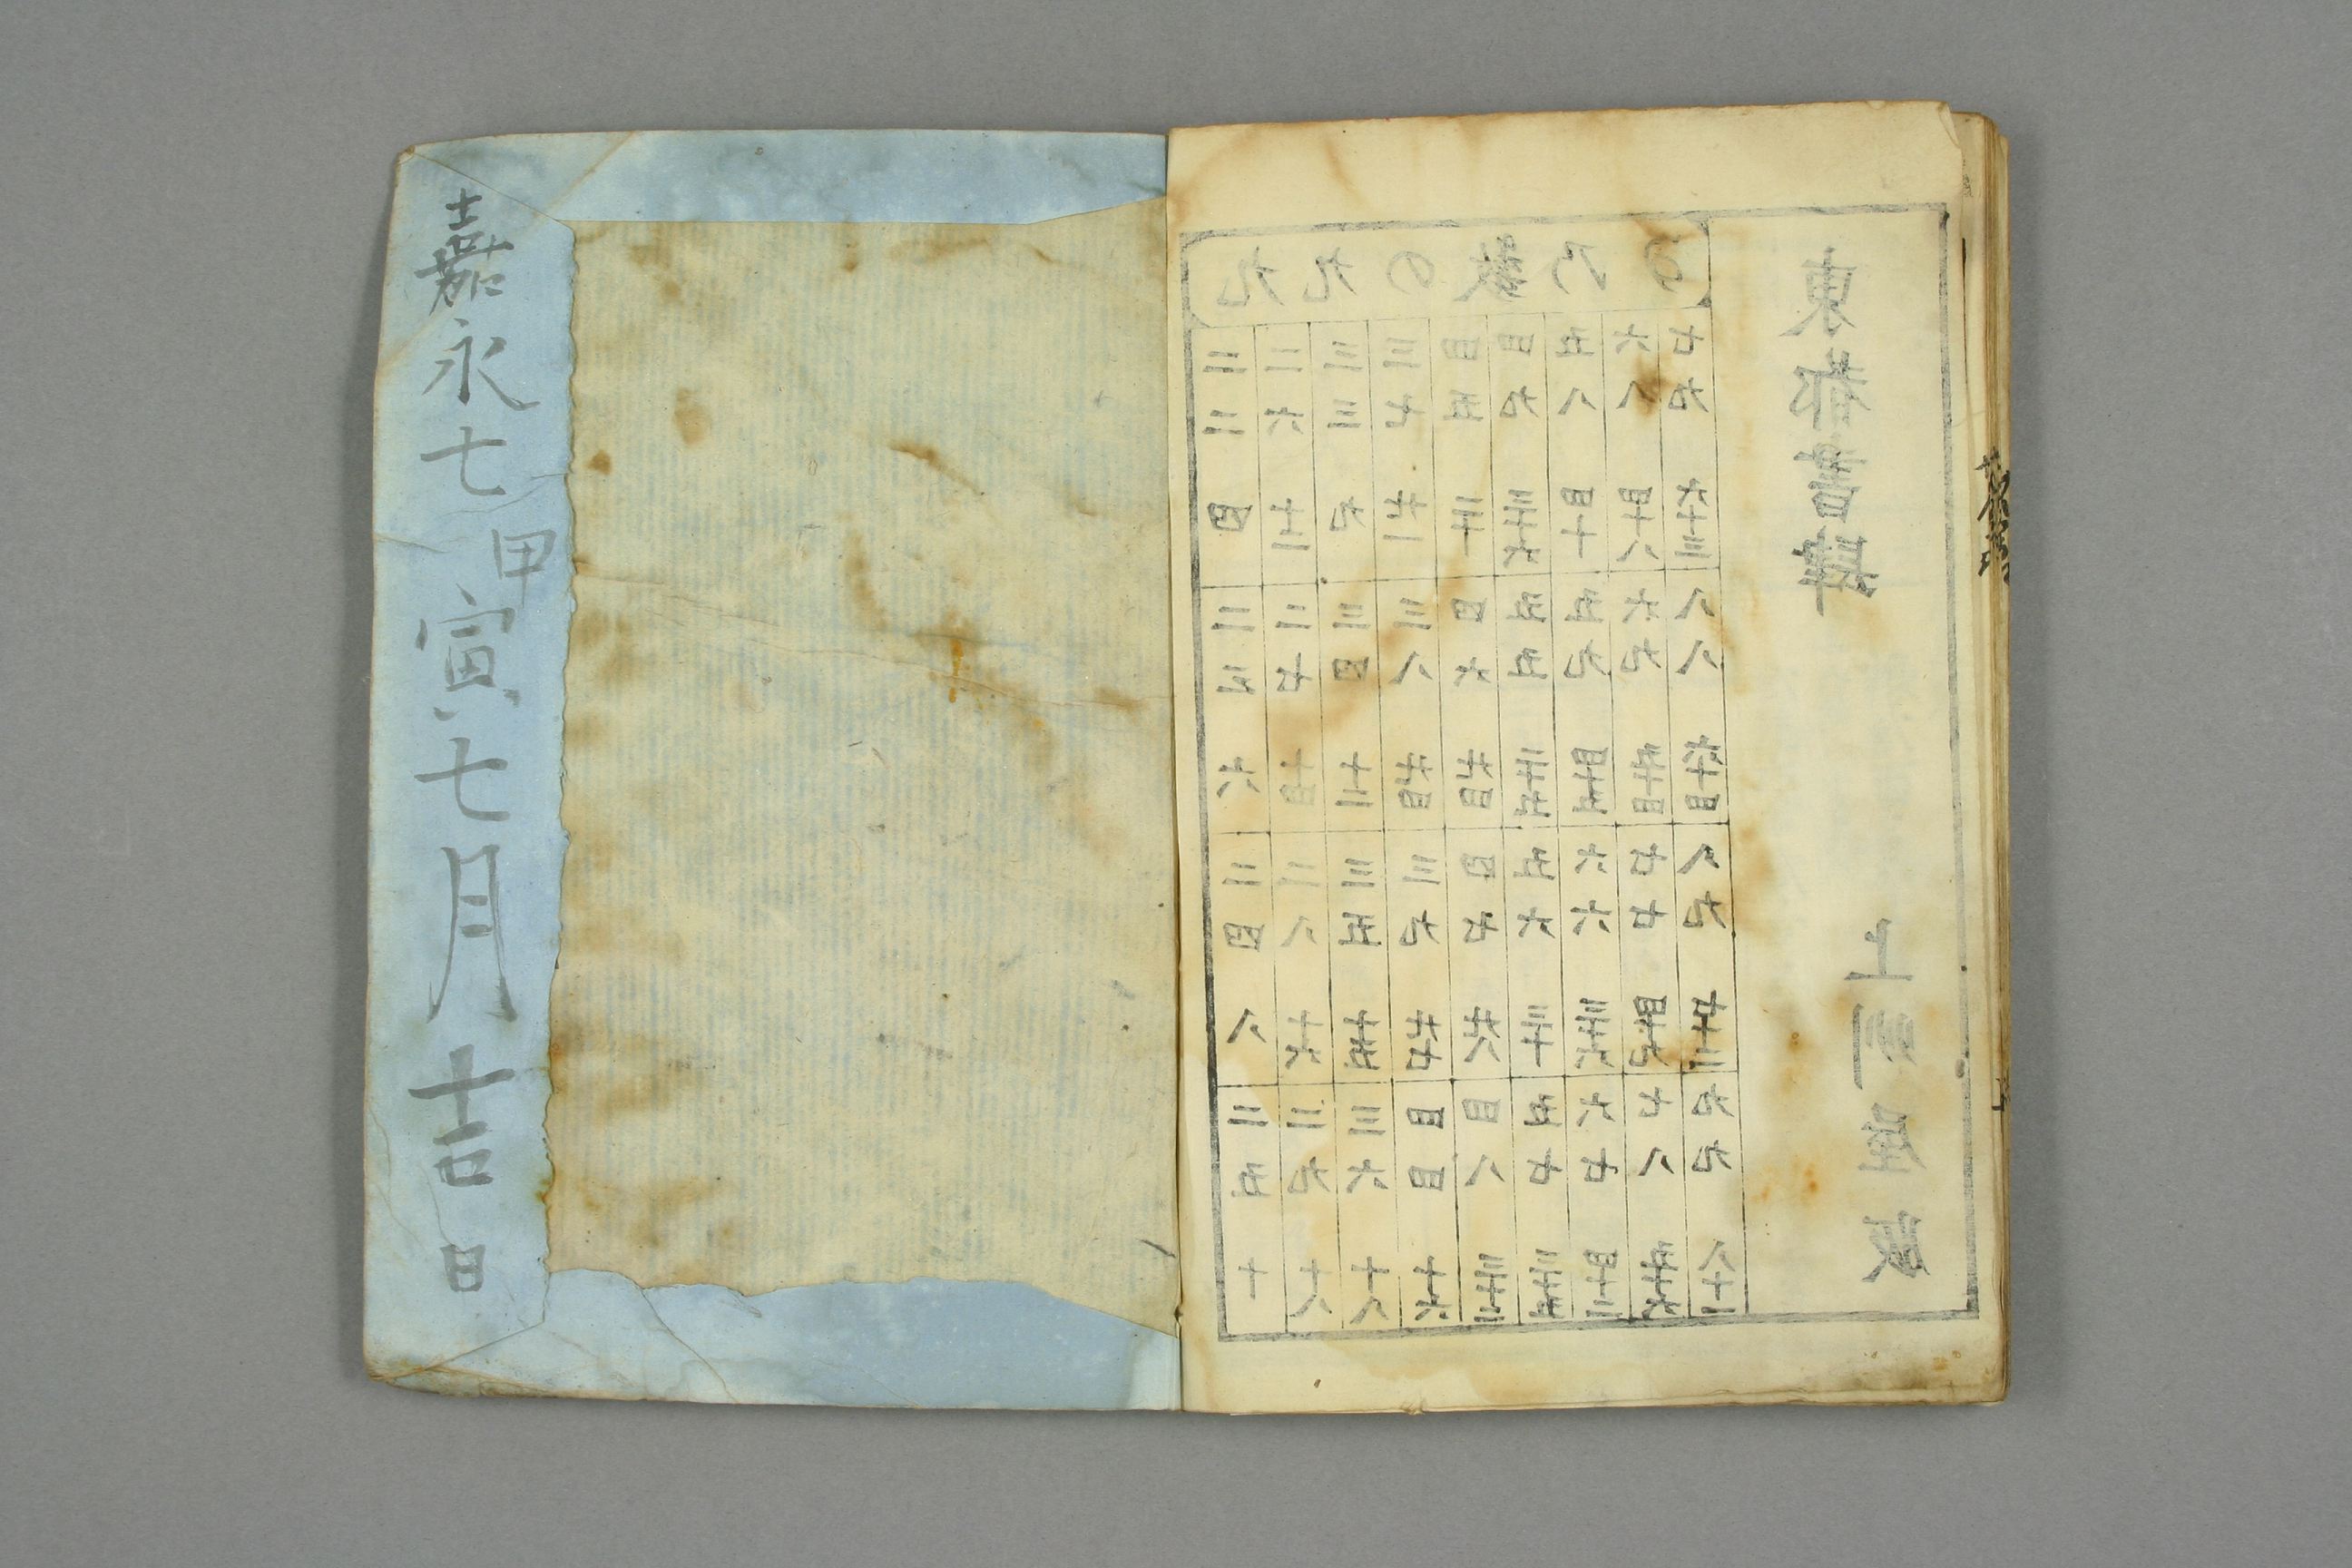 九九の数乃
二二 四 二三 六 二四 八 二五 十
二六 十二 二七 十四 二八 十六 二九 十八
三三 九 三四 十二 三五 十五 三六 十八
三七 廿一 三八 廿四 三九 廿七 四四 十六
四五 二十 四六 廿四 四七 廿八 四八 三十二
四九 三十六 五五 二十五 五六 三十 五七 三十五
五八 四十 五九 四十五 六六 三十六 六七 四十二
六八 四十八 六九 五十四 七七 四十九 七八 五十六
七九 六十三 八八 六十四 八九 七十二 九九 八十一
東都書肆 上州屋版
嘉永七甲寅七月吉日